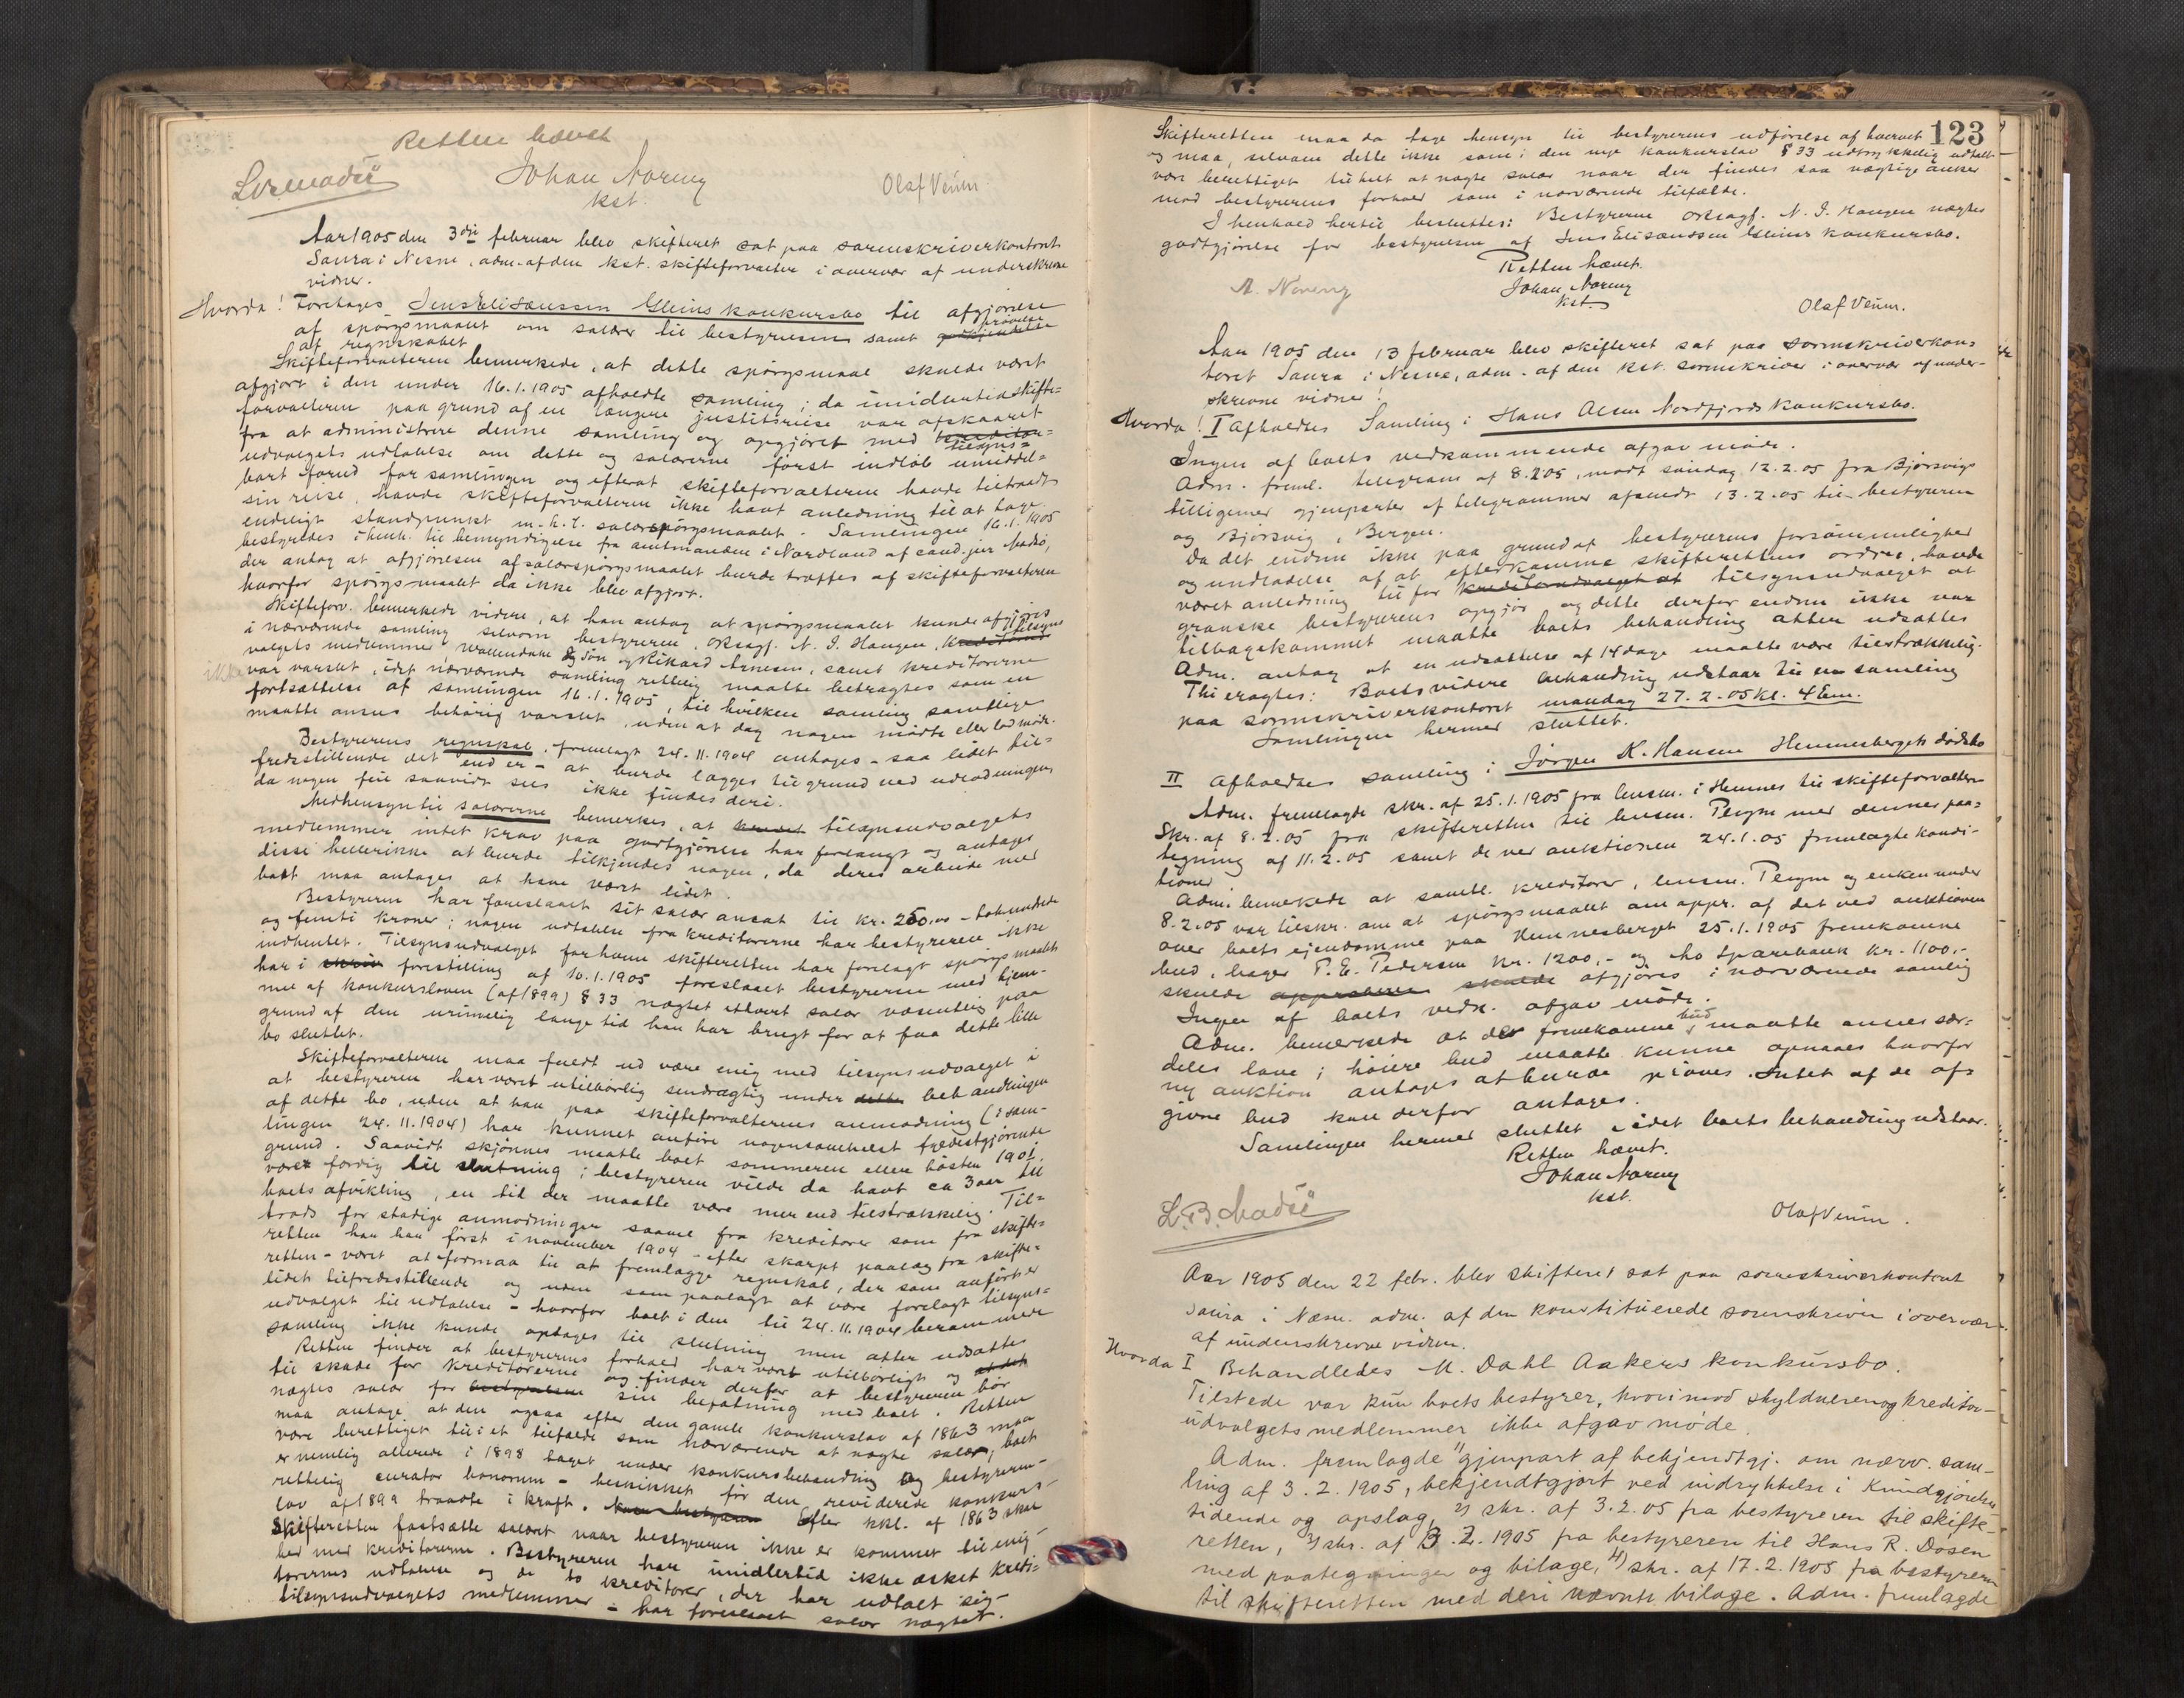 Retten hævet
Johan Noreng
kst.
Olaf Venm.
Aar 1905 den 3die februar blev skifteret sat paa sorenskriverkontoret
Saura i Nesne, adm. af den kst. skifteforvalter i overvær af underskrevne
vidner.
Hvorda! Foretages Jens Elisæussen Gleins konkursbo til afgjørelse
af spørgsmaalet om salærer til bestyrelsen samt godkjendelse prøvelse
af regnskabet
Skifteforvalteren bemerkede, at dette spørgsmaal skulde været
afgjort i den under 16.1.1905 afholdte samling; da imidlertid skifte=
forvalteren paa grund af en længere justitsreise var afskaaret
fra at administrere denne samling og opgjøret med kreditor= tilsyns=
udvalgets udtalelse om dette og salærerne først indløb umiddel=
bart forud for samlingen og efterat skifteforvalteren havde tiltraadt
sin reise, havde skifteforvalteren ikke havt anledning til at tage
endeligt standpunkt m.h.t. salærspørgsmaalet. Samlingen 16.1.1905
bestyredes i henh. til bemyndigelse fra amtmanden i Nordland af cand. jur. Madsö,
der antog at afgjørelsen af salærspørgsmaalet burde træffes af skifteforvalteren
hvorfor spørgsmaalet da ikke blev afgjort.
Skifteforv. bemerkede videre, at han antog at spørgsmaalet kunde afgjøres
i nærværende samling selvom bestyreren, oksagf. N. J. Hangen, kreditorud tilsynsud
valgets medlemmer Wallendahl & Søn og Rikard Arnesen, samt kreditorerne
ikke var varslet, idet nærværende samling rettelig maatte betragtes som en
fortsættelse af samlingen 16.1.1905, til hvilken samling samtlige
maatte ansees behørig varslet, uden at dog nogen mødte eller lod møde.
Bestyrerens regnskab, fremlagt 24.11.1904 antages - saa lidet til=
fredsstillende det end er - at burde lægges til grund ved udlodningen,
da nogen feil saavidt sees ikke findes deri.
Med hensyn til salærerne bemerkes, at tilsynsudvalgets
medlemmer intet krav paa godtgjørelse har forlangt og antages
disse hellerikke at burde tilkjendes nogen, da deres arbeide med
boet maa antages at have vært lidet.
Bestyreren har foreslaaet sit salær ansat til kr. 250.00 - tohundrede
og femti kroner; nogen udtalelse fra kreditorerne har bestyreren ikke
indhentet. Tilsynsudvalget forhvem skifteretten har forelagt spørgsmaalet
har i skriv forestilling af 10.1.1905 foreslaaet bestyreren med hjem=
mel af konkursloven (af 1899) § 33 nægtet ethvert salær væsentlig paa
grund af den urimelig lange tid han har brugt for at faa dette lille
bo sluttet.
Skifteforvalteren maa fuldt ud være enig med tilsynsudvalget i
at bestyreren har været utilbørlig sendrægtig under dette behandlingen
af dette bo, uden at han paa skifteforvalterens anmodning (i sam=
lingen 24.11.1904) har kunnet anføre nogensomhelst fyldestgjørende
grund. Saavidt skjønnes maatte boet sommeren eller høsten 1901
vært færdig til slutning; bestyreren vilde da havt ca 3 aar til
boets afvikling, en tid der maatte være mer end tilstrækkelig. Til=
trods for stadige anmodninger saavel fra kreditorer som fra skifte=
retten har han først i november 1904 - efter skarpt paalæg fra skifte=
retten - været at formaa til at fremlægge regnskab, der som anført er
lidet tilfredsstillende og uden som paalagt at være forelagt tilsyns=
udvalget til udtalelse - hvorfor boet i den til 24.11.1904 berammede
samling ikke kunde optages til slutning men atter udsattes
Retten finder at bestyrerens forhold har været utilbørligt og
til skade for kreditorerne og finder derfor at bestyreren bør
nægtes salær for bestyrelsen sin befatning med boet. Retten
maa antage at den ogsaa efter den gamle konkurslov af 1863 maa
være berettiget til i et tilfælde som nærværende at nægte salær; boet
er nemlig allerede i 1898 taget under konkursbehandling og bestyreren -
rettelig curator bonorum - beskikket før den reviderede konkurs=
lov af 1899 traadte i kraft. Efter kkl. af 1863 skal
Skifteretten fastsætte salæret naar bestyreren ikke er kommet til enig=
hed med kreditorerne. Bestyreren har imidlertid ikke æsket kredi=
torernes udtalelse og de to kreditorer, der har udtalt sig -
tilsynsudvalgets medlemmer - har foreslaaet salær nægtet.
123
Skifteretten maa da tage hensyn til bestyrerens udførelse af hvervet
og maa, selvom dette ikke som i den nye konkurslov § 33 udtrykkelig udtalt
være berettiget tilhelt at nægte salær naar der findes saa vægtige anker
mod bestyrerens forhold som i nærværende tilfælde.
I henhold hertil besluttes: Bestyreren oksagf. N. J. Hangen nægtes
godtgjørelse for bestyrelsen af Jens Elisæussen Gleins konkursbo.
Retten hævet.
Johan Noreng
kst.
A. Noreng
Olaf Venm.
Aar 1905 den 13 februar blev skifteret sat paa sorenskriverkon=
toret Saura i Nesne, adm. af den kst. sorenskriver i overvær af under=
skrevne vidner.
Hvorda! I Afholdtes Samling i Hans Olsen Nordfjords konkursbo.
Ingen af boets vedkommende afgav møde.
Adm. freml. telegram af 8.2.05, modt søndag 12.2.05 fra Bjørsvigs
tilligemed gjenparter af telegrammer afsendt 13.2.05 til bestyreren
og Bjørsvig, Bergen.
Da det endnu ikke paa grund af bestyrerens forsømmelighed
og undladelse af at efterkomme skifterettens ordre, havde
været anledning til for kreditorudvalget at tilsynsudvalget at
granske bestyrerens opgjør og dette derfor endnu ikke var
tilbagekommet maatte boets behandling atter udsættes
Adm. antog at en udsættelse af 14 dage maatte være tilstrækkelig.
Thi eragtes: Boets videre behandling udstaar til en samling
paa sorenskriverkontoret mandag 27.2.05 kl. 4 Em.
Samlingen hermed sluttet.
II Afholdtes samling i Jørgen K. Hansen Hemnesbergets dødsbo
Adm. fremlagde skr. af 25.1.1905 fra lensm. i Hemnes til skifteforvalteren
Skr. af 8.2.05 fra skifteretten til lensm. Pleym med dennes paa=
tegning af 11.2.05 samt de ved auktionen 24.1.05 fremlagte kondi=
tioner.
Adm. bemerkede at samtl. kreditorer, lensm. Pleym og enken under
8.2.05 var tilskr. om at spørgsmaalet om appr. af det ved auktionen
over boets ejendomme paa Hemnesberget 25.1.1905 fremkomne
bud, bager P. E. Pedersen kr. 1200,- og Mo Sparebank kr. 1100.-
skulde approberes skulde afgjøres i nærværende samling
Ingen af boets vedk. afgav møde.
Adm. bemerkede at det fremkomne bud maatte ansees sær=
deles lave; høiere bud maatte kunne opnaaes hvorfor
ny auktion antages at burde prøves. Intet af de af=
givne bud kan derfor antages.
Samlingen hermed sluttet idet boets behandling udstaar.
Retten hævet.
Johan Noreng
kst.
L. B. Madsö
Olaf Venm.
Aar 1905 den 22 febr. blev skifteret sat paa sorenskriverkontoret
Saura i Næsne adm. af den konstituerede sorenskriver i overvær
af underskrevne vidner.
Hvorda I Behandledes M. Dahl Aakers konkursbo.
Tilstede var kun boets bestyrer, hvorimod skyldneren og kreditor-
udvalgets medlemmer ikke afgav møde.
Adm. fremlagde 1) gjenpart af bekjendtgj. om nærv. sam-
ling af 3.2.1905, bekjendtgjort ved indrykkelse i Kundgjørelses
tidende og opslag, 2) skr. af 3.2.05 fra bestyreren til skifte-
retten, 3) skr. af 3.2.1905 fra bestyreren til Hans R. Dosen
med paategninger og bilage, 4) skr. af 17.2.1905 fra bestyreren
til skifteretten med deri nævnte bilage. Adm. fremlagde